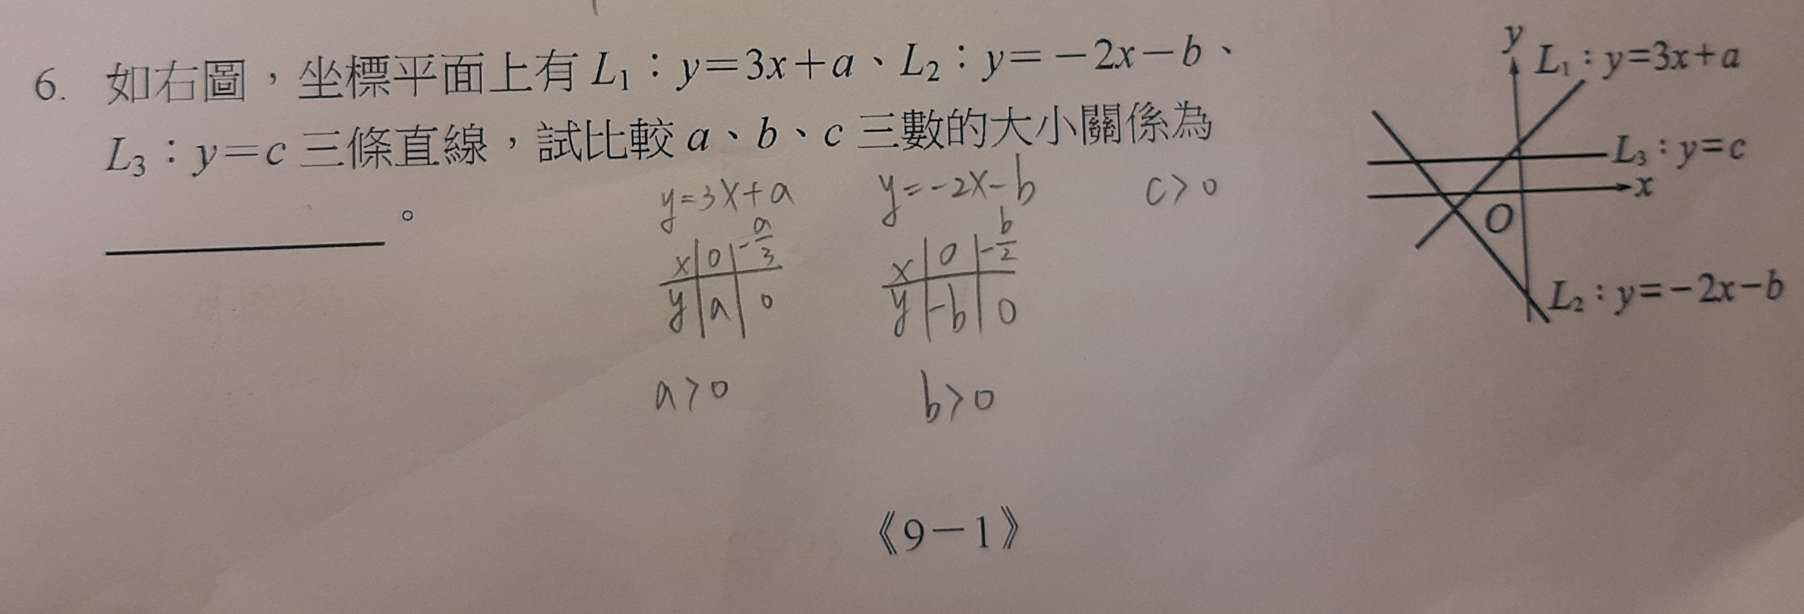 6. 如右圖，坐標平面上有 L₁：y=3x+a、L₂：y=-2x-b、
L₃：y=c 三條直線，試比較 a、b、c 三數的大小關係為
______。
y=3x+a
x | 0 | -a/3
y | a | 0
a>0
y=-2x-b
x | 0 | -b/2
y | -b | 0
b>0
c>0
y
L₁：y=3x+a
L₃：y=c
x
O
L₂：y=-2x-b
《9－1》